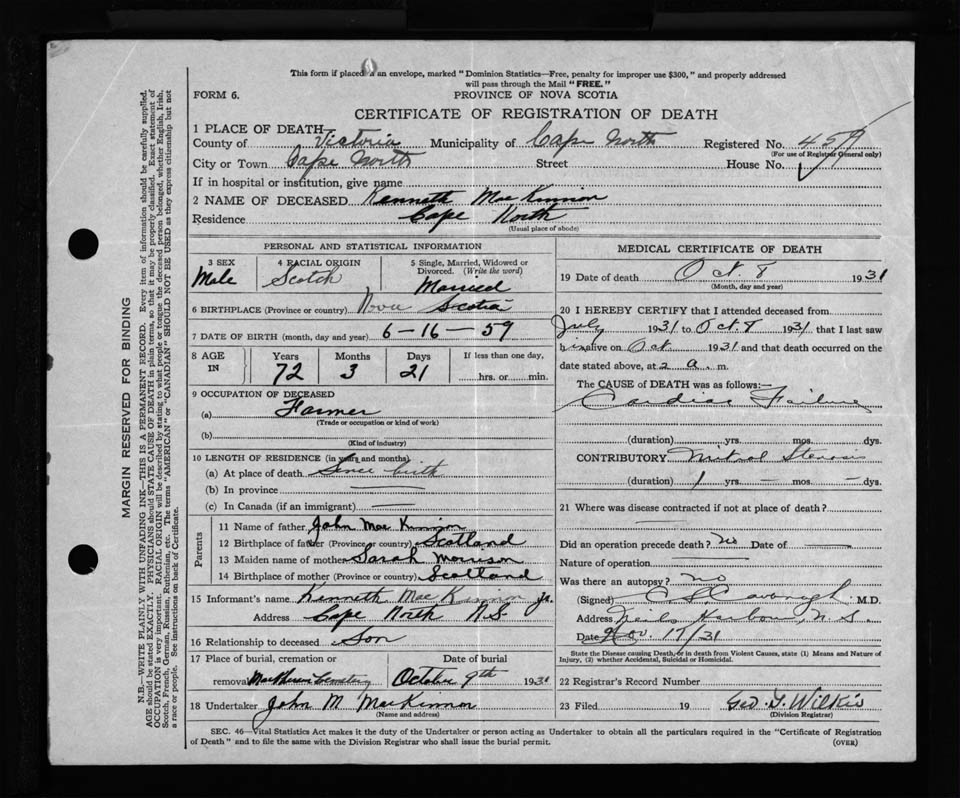 This form if placed in an envelope, marked "Dominion Statistics—Free, penalty for improper use $300," and properly addressed
will pass through the Mail "FREE."
FORM 6.
PROVINCE OF NOVA SCOTIA
CERTIFICATE OF REGISTRATION OF DEATH
1 PLACE OF DEATH
County of Victoria Municipality of Cape North Registered No. 459
(For use of Registrar General only)
City or Town Cape North Street House No.
If in hospital or institution, give name
2 NAME OF DECEASED Kenneth MacKinnon
Residence Cape North
(Usual place of abode)
PERSONAL AND STATISTICAL INFORMATION
3 SEX Male
4 RACIAL ORIGIN Scotch
5 Single, Married, Widowed or Divorced. (Write the word) Married
6 BIRTHPLACE (Province or country) Nova Scotia
7 DATE OF BIRTH (month, day and year) 6-16-59
8 AGE IN Years 72 Months 3 Days 21 If less than one day, hrs. or min.
9 OCCUPATION OF DECEASED
(a) Farmer
(Trade or occupation or kind of work)
(b)
(Kind of industry)
10 LENGTH OF RESIDENCE (in years and months)
(a) At place of death Since birth
(b) In province —
(c) In Canada (if an immigrant) —
Parents
11 Name of father John MacKinnon
12 Birthplace of father (Province or country) Scotland
13 Maiden name of mother Sarah
14 Birthplace of mother (Province or country) Scotland
15 Informant's name Kenneth MacKinnon Jr.
Address Cape North N.S.
16 Relationship to deceased Son
17 Place of burial, cremation or removal Cemetery
Date of burial October 9th 1931
18 Undertaker John M MacKinnon
(Name and address)
MEDICAL CERTIFICATE OF DEATH
19 Date of death Oct. 8 1931
(Month, day and year)
20 I HEREBY CERTIFY that I attended deceased from
July 1931 to Oct. 8 1931, that I last saw
him alive on Oct 1931 and that death occurred on the
date stated above, at 2 a. m.
The CAUSE of DEATH was as follows:—
Cardiac Failure
(duration) yrs. mos. dys.
CONTRIBUTORY Mitral Stenosis
(duration) 1 yrs. — mos. — dys.
21 Where was disease contracted if not at place of death?
Did an operation precede death? No Date of —
Nature of operation
Was there an autopsy? no
(Signed) M.D.
Address Neils Harbour, N.S.
Date Nov. 17/31
State the Disease causing Death, or in death from Violent Causes, state (1) Means and Nature of
Injury, (2) whether Accidental, Suicidal or Homicidal.
22 Registrar's Record Number
23 Filed 19 Geo. Wilkie
(Division Registrar)
SEC. 46—Vital Statistics Act makes it the duty of the Undertaker or person acting as Undertaker to obtain all the particulars required in the "Certificate of Registration
of Death" and to file the same with the Division Registrar who shall issue the burial permit.
(OVER)
MARGIN RESERVED FOR BINDING
N.B.—WRITE PLAINLY WITH UNFADING INK—THIS IS A PERMANENT RECORD. Every item of information should be carefully supplied.
AGE should be stated EXACTLY. PHYSICIANS should STATE CAUSE OF DEATH in plain terms, so that it may be properly classified. Exact statement of
OCCUPATION is very important. RACIAL ORIGIN will be described by stating to what people or tongue the deceased person belonged, whether English, Irish,
Scotch, French, German, Russian, Ruthenian, etc. The terms "AMERICAN" or "CANADIAN" SHOULD NOT BE USED as they express citizenship but not
a race or people. See instructions on back of Certificate.